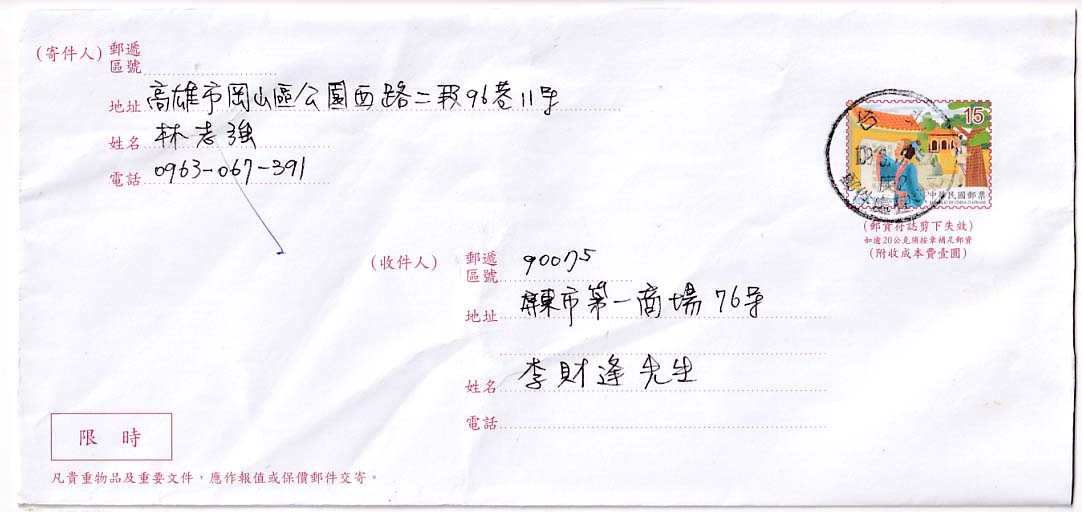 (寄件人)
郵遞
區號
地址 高雄市岡山區公園西路二段96巷11号
姓名 林志強
電話 0963-067-391
15
中華民國郵票
REPUBLIC OF CHINA (TAIWAN)
(郵資符誌剪下失效)
如逾20公克須按章補足郵資
(附收成本費壹圓)
(收件人)
郵遞
區號 90075
地址 屏東市第一商場 76号
姓名 李財逢 先生
電話
限 時
凡貴重物品及重要文件,應作報值或保價郵件交寄。